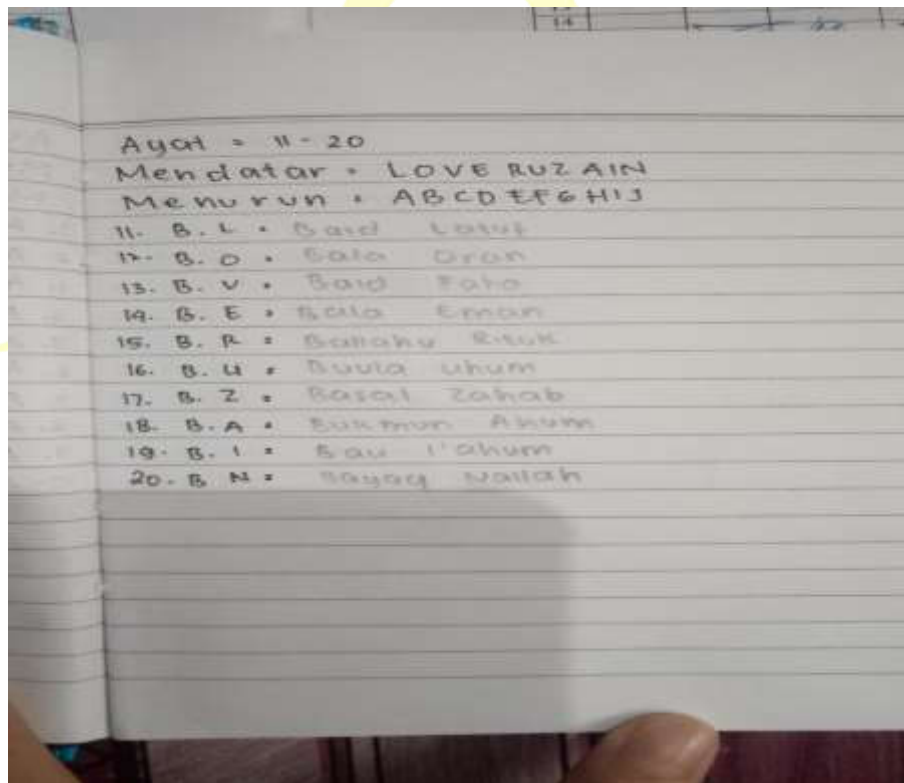 14
Ayat = 11-20
Mendatar = LOVE RUZAIN
Menurun = ABCDEFGHIJ
11. B. L = Baid Latuf
12. B. O = Bala Oran
13. B. V = Baid
14. B. E = Bala Eman
15. B. R = Ballahu
16. B. U = Buula Uhum
17. B. Z = Basal Zahab
18. B. A = Bukmun Ahum
19. B. I = Bau I'ahum
20. B N = Bayaq Nallah